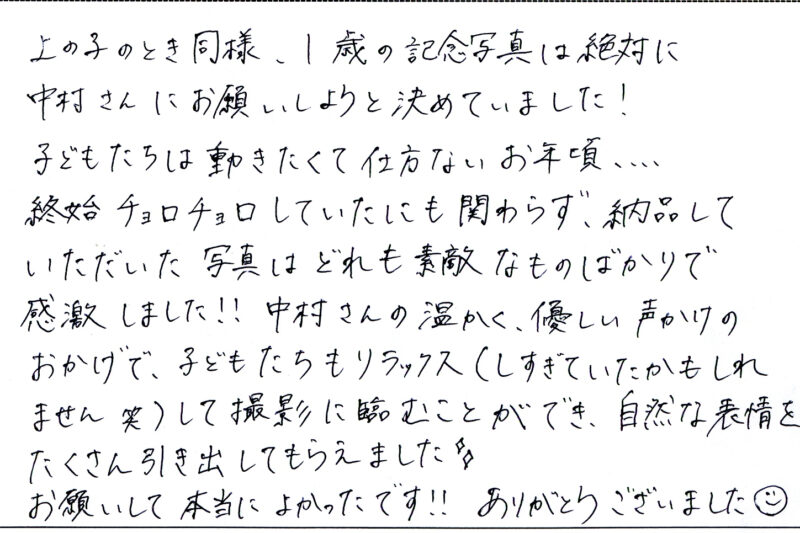 上の子のとき同様、1歳の記念写真は絶対に
中村さんにお願いしようと決めていました!
子どもたちは動きたくて仕方ないお年頃、...
終始チョロチョロしていたにも関わらず、納品して
いただいた写真はどれも素敵なものばかりで
感激しました!! 中村さんの温かく、優しい声かけの
おかげで、子どもたちもリラックス(しすぎていたかもしれ
ません笑)して撮影に臨むことができ、自然な表情を
たくさん引き出してもらえました
お願いして本当によかったです!! ありがとうございました☺